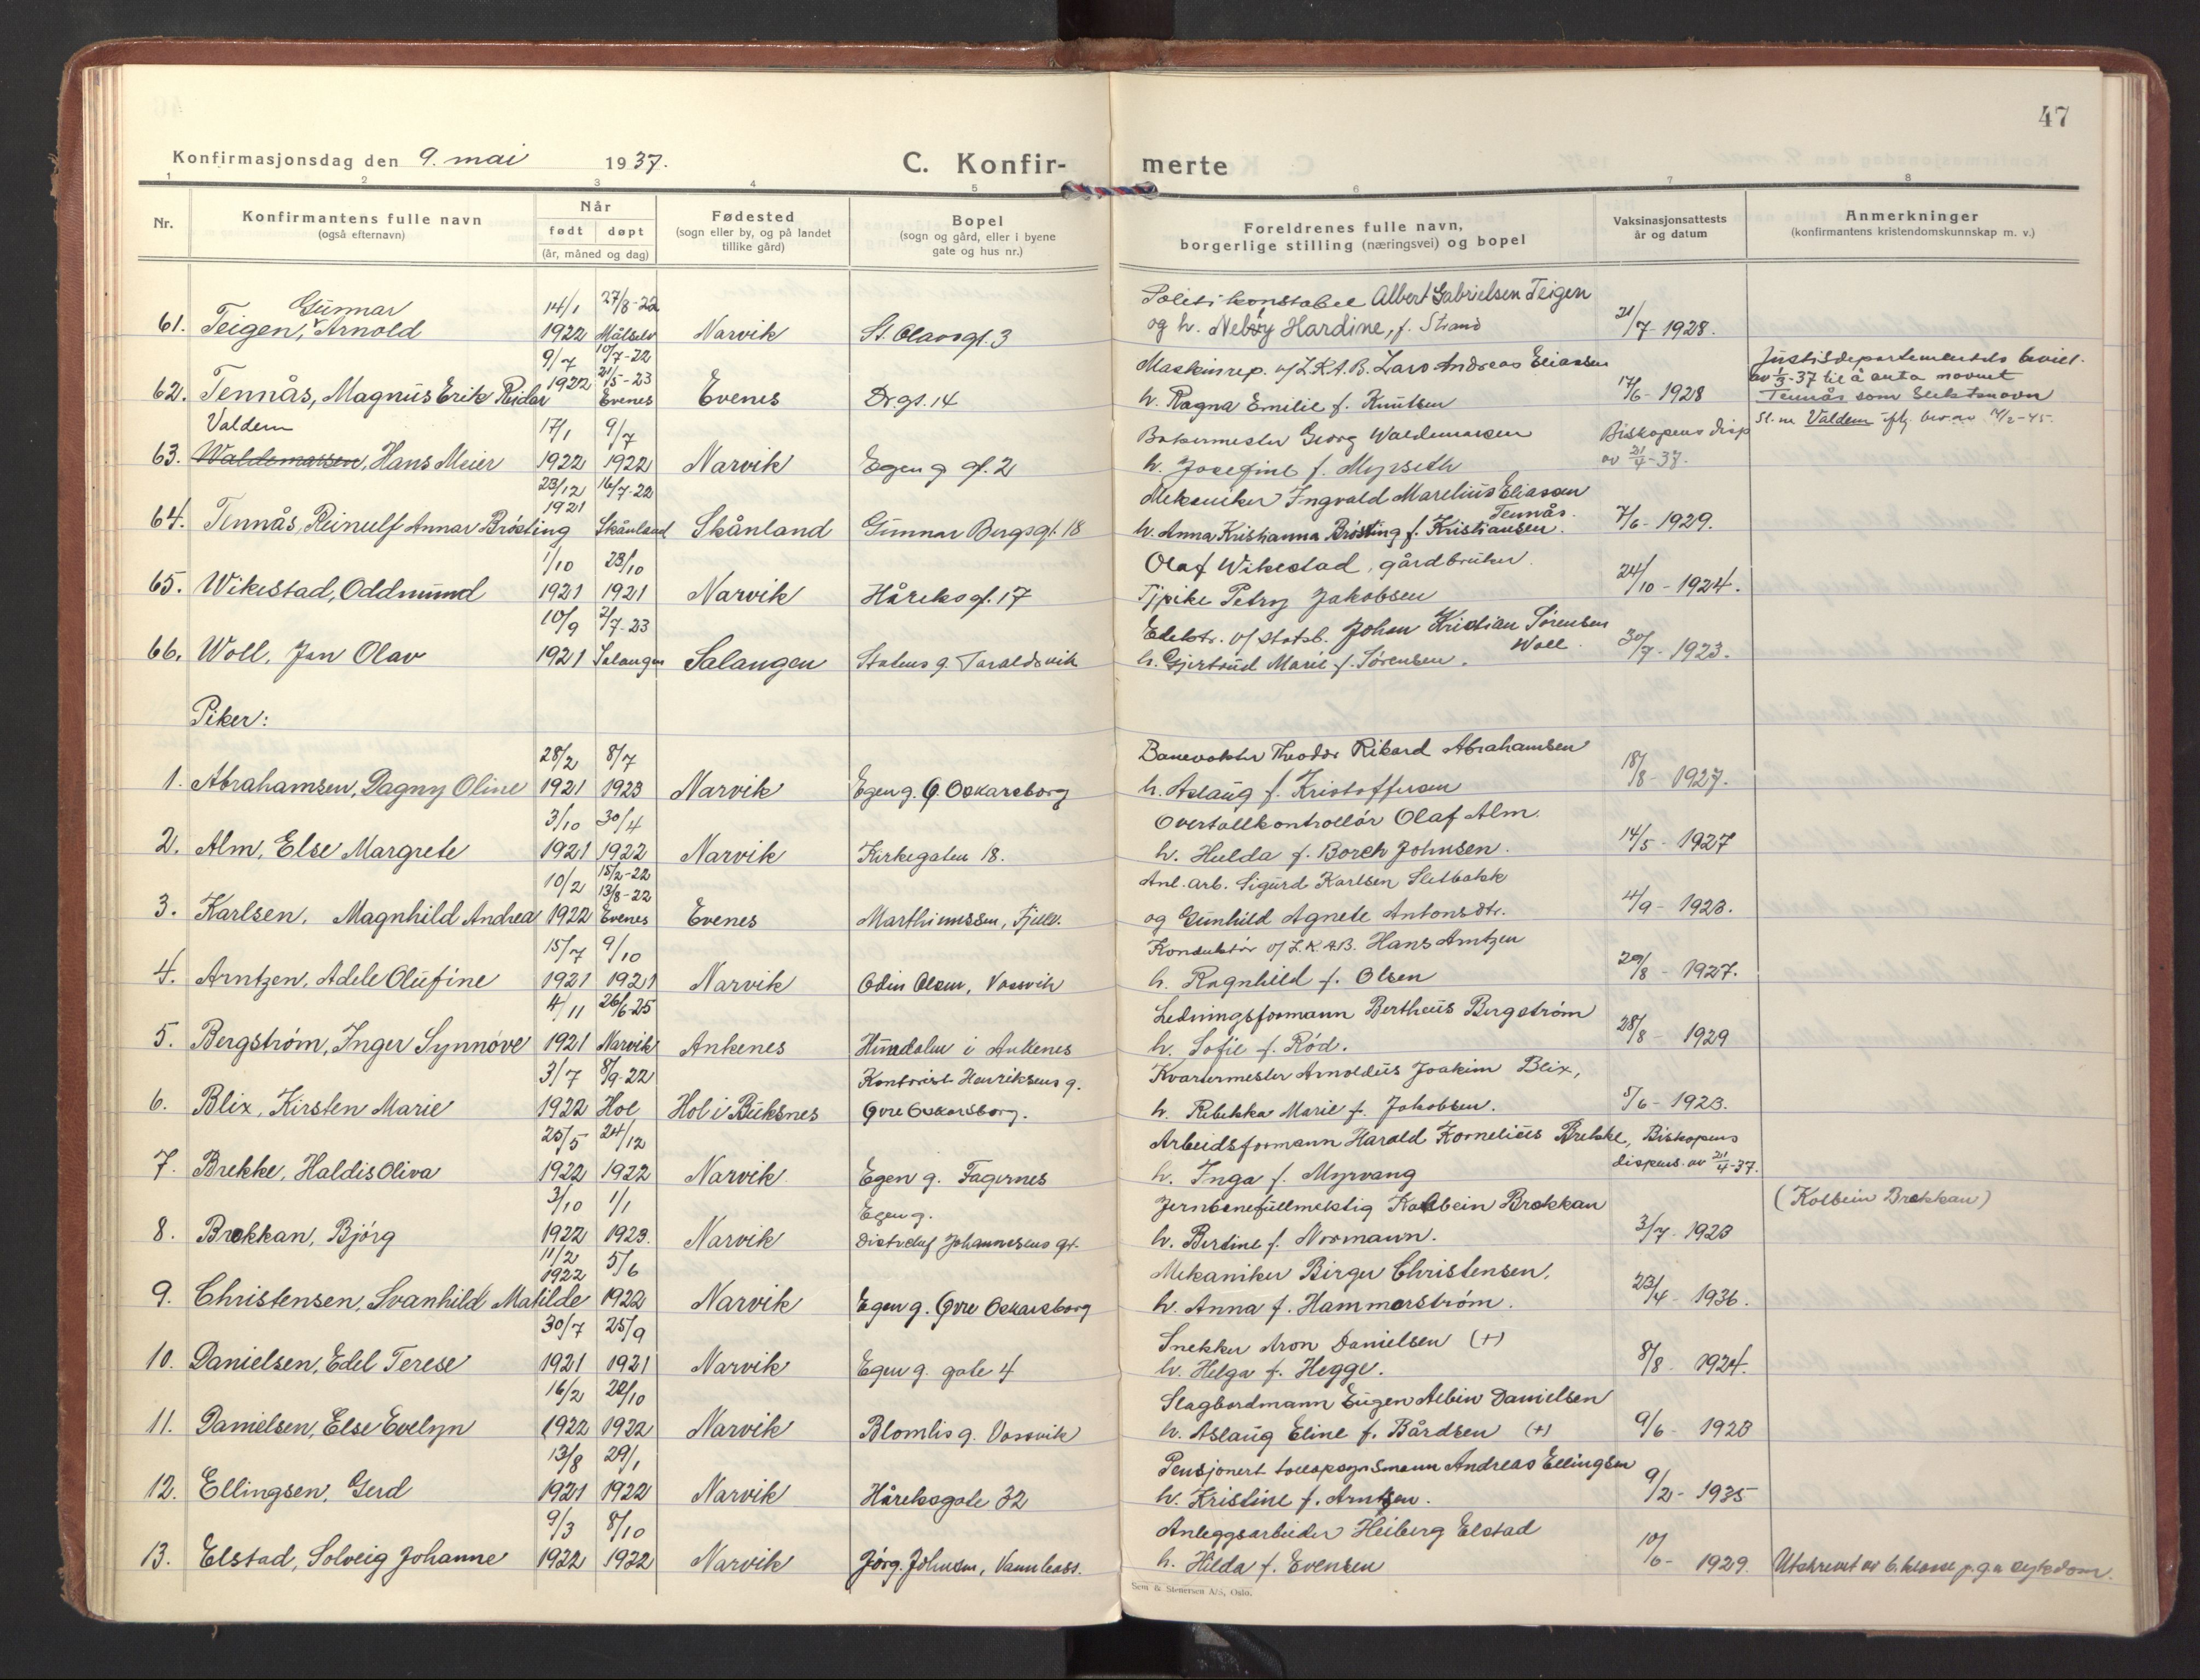 47
Konfirmasjonsdag den 9. mai 1937.
C. Konfir- merte
1 2 3 4 5 6 7 8
Nr.
Konfirmantens fulle navn
(også efternavn)
Når
født døpt
(år, måned og dag)
Fødested
(sogn eller by, og på landet
tillike gård)
Bopel
(sogn og gård, eller i byene
gate og hus nr.)
Foreldrenes fulle navn,
borgerlige stilling (næringsvei) og bopel
Vaksinasjonsattests
år og datum
Anmerkninger
(konfirmantens kristendomskunnskap m. v.)
Gunnar 14/1 27/8-22 Politikonstabel Albert Gabrielsen Teigen
61. Teigen, Arnold 1922 Målselv Narvik St. Olavsgt. 3 og h. Hardine, f. Strand 21/7-1928.
9/7 10/7-22 Maskinrep. v/L.K.A.B. Lars Andreas Eliassen Justisdepartementets bevill.
62. Tennås, Magnus Erik Reidar 1922 21/5-23 Evenes Evenes Drgt. 14 h. Ragna Emilie f. Knutsen 17/6-1928 av 1/3-37 til å anta navnet
Tennås som slektsnavn
Valdem 17/1 9/7 Bakermester Georg Waldemarsen Biskopens disp Sl. n. Valdem iflg. bev. av
63. Waldemarsen, Hans Meier 1922 1922 Narvik Egen g. gt. 2 h. Josefine f. Myrseth av 21/4-37.
23/12 16/7-22 Mekaniker Ingvald Marelius Eliassen
1921 Tennås.
64. Tennås, Reinulf Annar Brösting Skånland Skånland Gunnar Bergsgt. 18 h. Anna Kristianna Brösting f. Kristiansen. 7/6-1929.
1/10 23/10 Olaf Wikestad, gårdbruker.
65. Wikestad, Oddmund 1921 1921 Narvik Håreksgt. 17 Petry Jakobsen 24/10-1924.
10/9 2/7-23 v/statsb. Johan Kristian Sørensen
66. Woll, Jan Olav 1921 Salangen Salangen Statens g. Taraldsvik h. Gjertrud Marie f. Sørensen. Woll 30/7-1923.
Piker:
28/2 8/7 Banevokter Theodor Rikard Abrahamsen
1. Abrahamsen, Dagny Oline 1921 1923 Narvik Egen g. Ø. Oskarsborg h. Aslaug f. Kristoffersen 18/8-1927.
3/10 30/4 Overtollkontrollør Olaf Alm.
2. Alm, Else Margrete 1921 1922 Narvik Kirkegaten 18. h. Hulda f. Borch Johnsen. 14/5-1927
10/2 15/2-22 Anl. arb. Sigurd Karlsen Sletbakk
13/8-22
3. Karlsen, Magnhild Andrea 1922 Evenes Evenes Marthinussen, Fjellv. og Gunhild Agnete Antonsdtr. 14/9-1923.
15/7 9/10 Konduktør v/L.K.A.B. Hans Arntzen
4. Arntzen, Adele Olufine 1921 1921 Narvik Odin Olsen, Vassvik h. Ragnhild f. Olsen 29/8-1927.
4/11 26/6-25 Ledningsformann Bertheus Bergstrøm
5. Bergstrøm, Inger Synnøve 1921 Narvik Ankenes i Ankenes h. Sofie f. Röd. 28/8-1929
3/7 8/9-22 Kontorist Henriksens g. Kvartermester Arnoldus Joakim Blix,
6. Blix, Kirsten Marie 1922 Hol Hol i Buksnes Øvre Oskarsborg. h. Rebekka Marie f. Jakobsen. 5/6-1923.
25/5 24/12 Arbeidsformann Harald Kornelius Brekke, Biskopens
7. Brekke, Haldis Oliva 1922 1922 Narvik Egen g. Fagernes h. Inga f. Myrvang dispens. av 21/4-37.
3/10 1/1 Egen g. Jernbanefullmektig Kolbein Brekkan (Kolbein Brekkan)
8. Brekkan, Bjørg 1922 1923. Narvik Distrchef Johannesens gt. h. Bertine f. Normann. 3/7-1923
11/2 5/6 Mekaniker Birger Christensen,
1922
9. Christensen, Svanhild Matilde 1922 Narvik Egen g. Øvre Oskarsborg h. Anna f. Hammerstrøm. 23/4-1936.
30/7 25/9 Snekker Aron Danielsen (+)
10. Danielsen, Edel Terese 1921 1921 Narvik Egen g. gate 4 h. Helga f. Hegge. 8/8-1924.
16/2 20/10 Slagbordmann Eugen Albin Danielsen
11. Danielsen, Else Evelyn 1922 1922 Narvik Blomlis g. Vassvik h. Aslaug Eline f. Bårdsen (+) 9/6-1923
13/8 29/1 Pensjonert tollopsynsmann Andreas Ellingsen
12. Ellingsen, Gerd 1921 1922 Narvik Håreksgate 32 h. Kristine f. Arntzen. 9/2-1935
9/3 8/10 Anleggsarbeider Heiberg Elstad
13. Elstad, Solveig Johanne 1922 1922 Narvik Jørg. Johnsen, Vannbass. h. Hilda f. Evensen 10/6-1929. Utskrevet av 6. klasse p.g.a sykdom.
Sem & Stenersen A/S, Oslo.